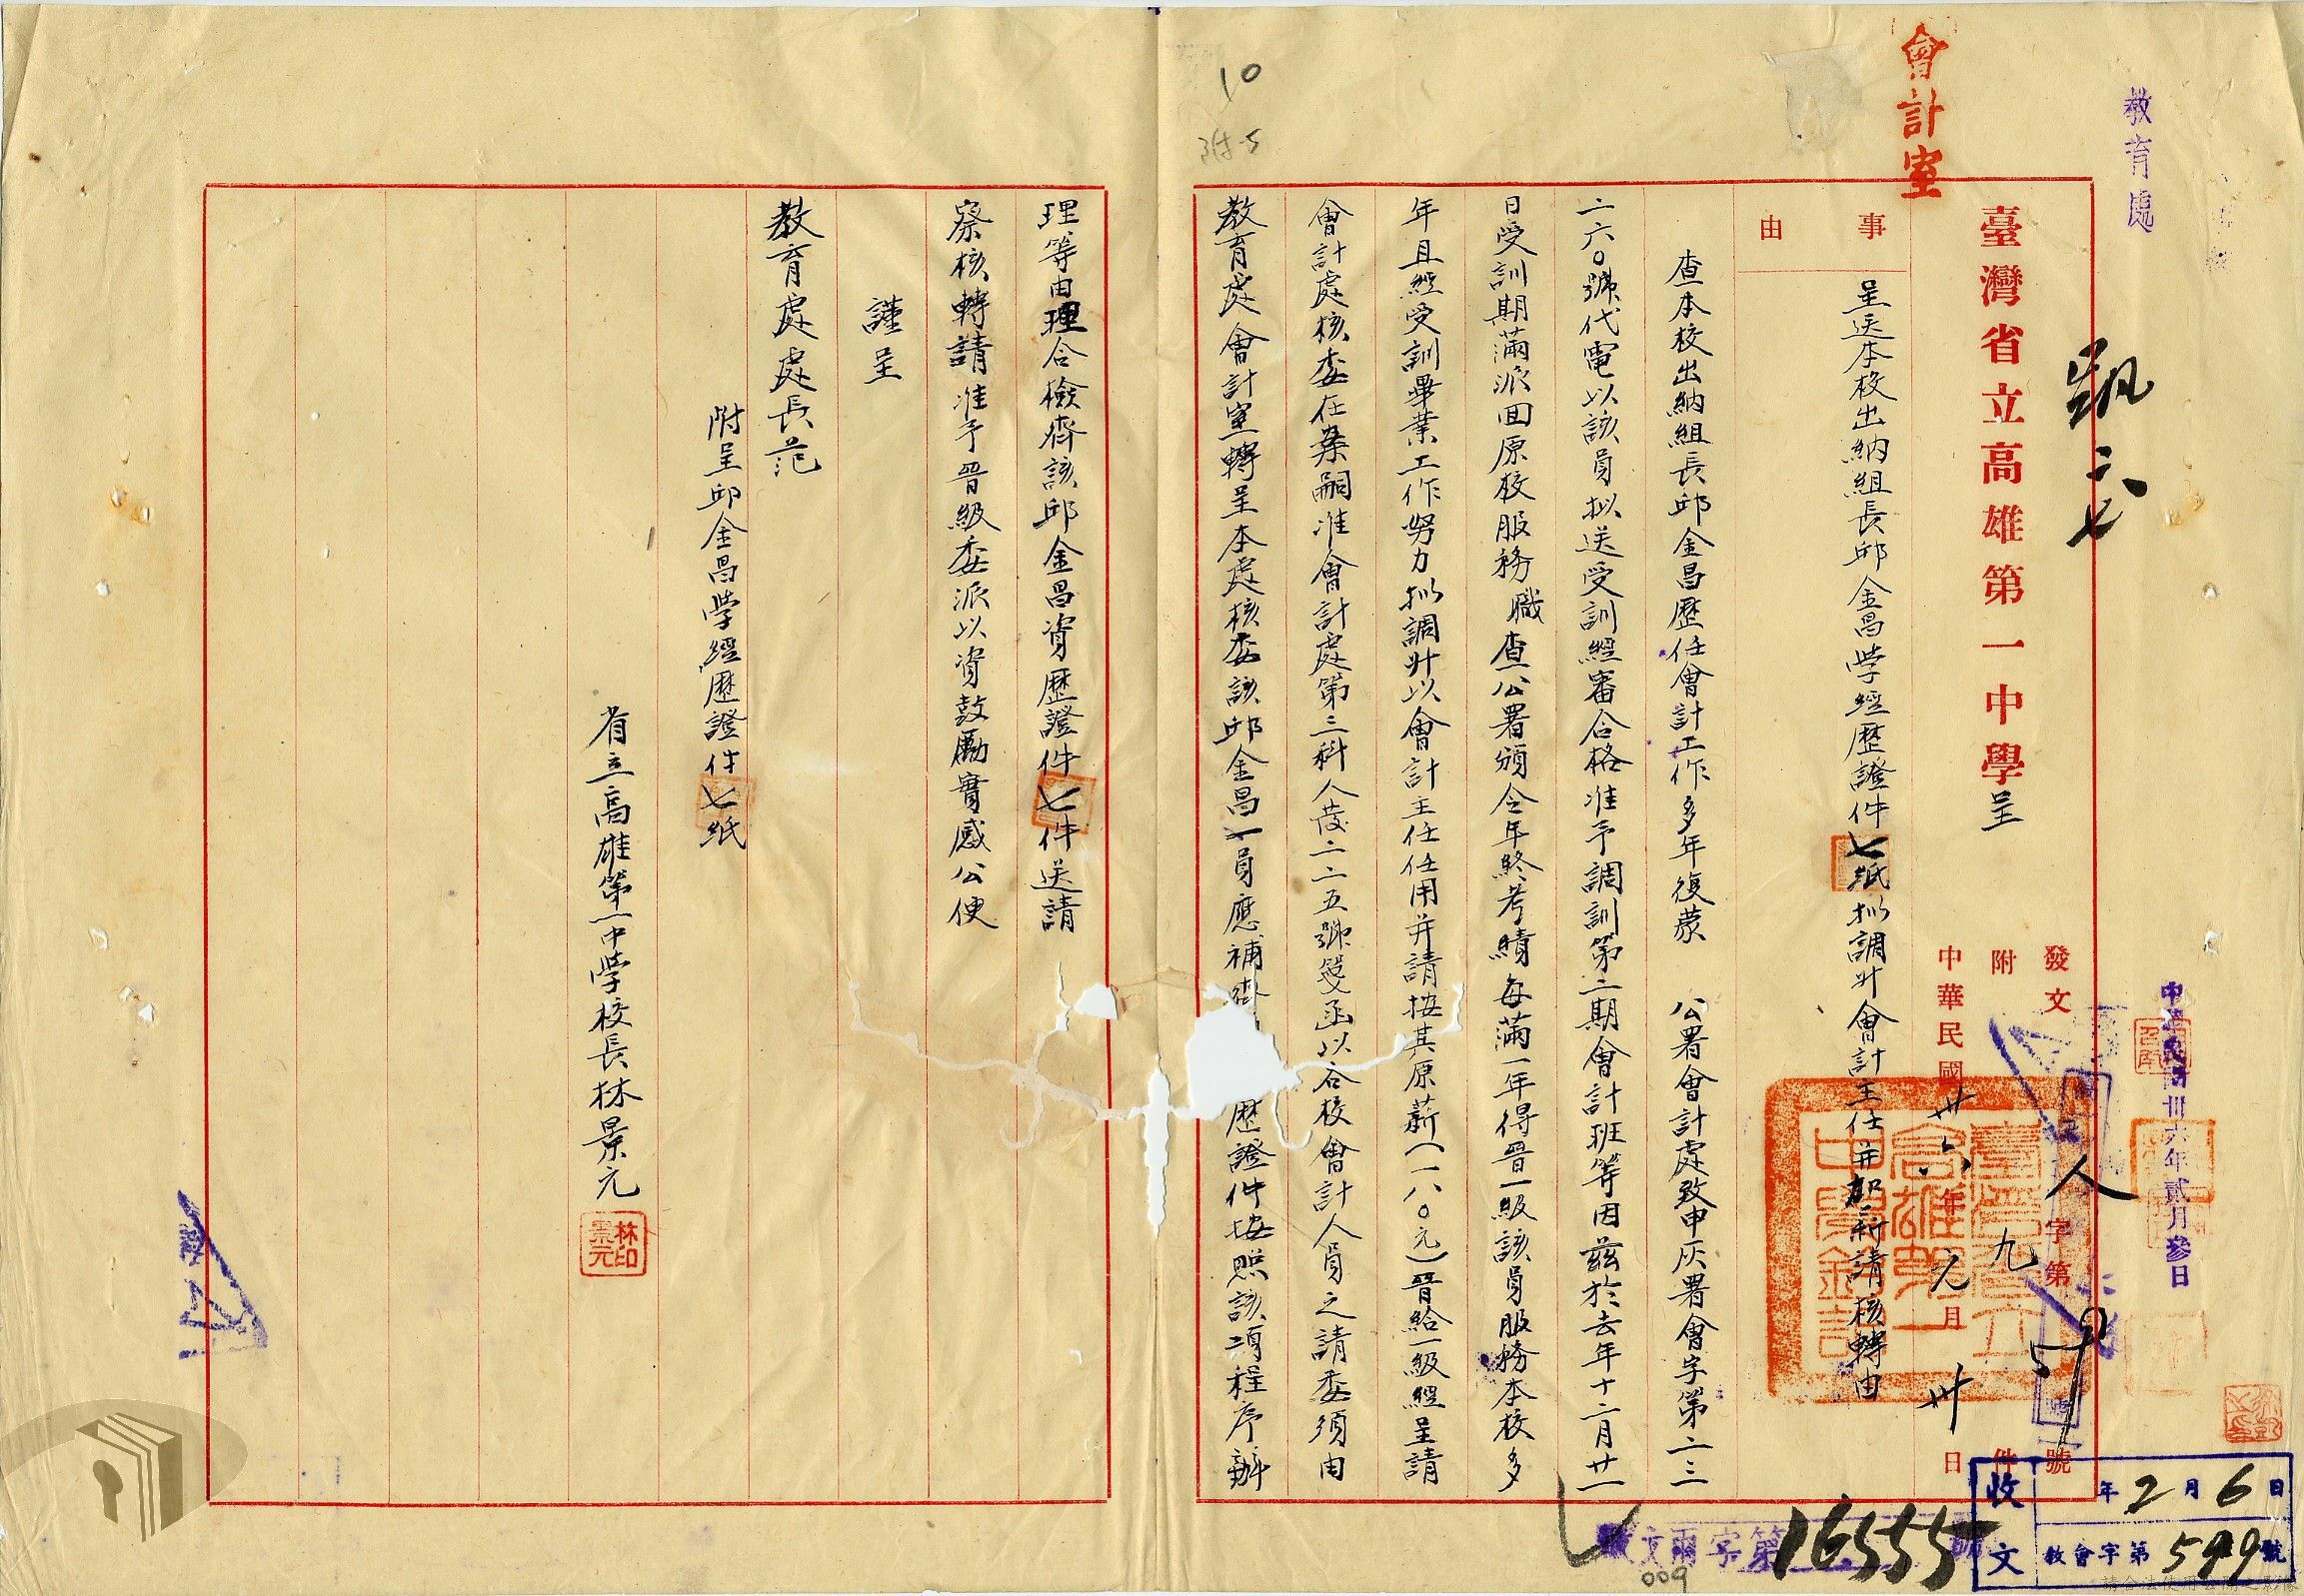 教育處
會計室
臺灣省立高雄第一中學呈
發文 人字第59號
附 九 件
中華民國卅六年元月卅日
中華民國卅六年貳月參日
事由
呈送本校出納組長邱金昌學經歷證件七紙擬調升會計主任并加薪請核轉由
查本校出納組長邱金昌歷任會計工作多年復蒙 公署會計處致申灰署會字第二三
二六〇號代電以該員擬送受訓經審合格准予調訓第二期會計班等因茲於去年十二月廿一
日受訓期滿派回原校服務職查公署頒令年終考績每滿一年得晉一級該員服務本校多
年且經受訓畢業工作努力擬調升以會計主任任用并請按其原薪(一八〇元)晉給一級經呈請
會計處核委在案嗣准會計處第三科人發二二五號箋函以各校會計人員之請委須由
教育處會計室轉呈本處核委該邱金昌一員應補 歷證件按照該項程序辦
理等由理合檢齊該邱金昌資歷證件七件送請
察核轉請准予晉級委派以資鼓勵實感公便
謹呈
教育處處長范
附呈邱金昌學經歷證件七紙
省立高雄第一中學校長林景元
林景元印
臺灣省立高雄第一中學鈐記
收文
年2月6日
教會字第599號
字第16555
10
附-5
009